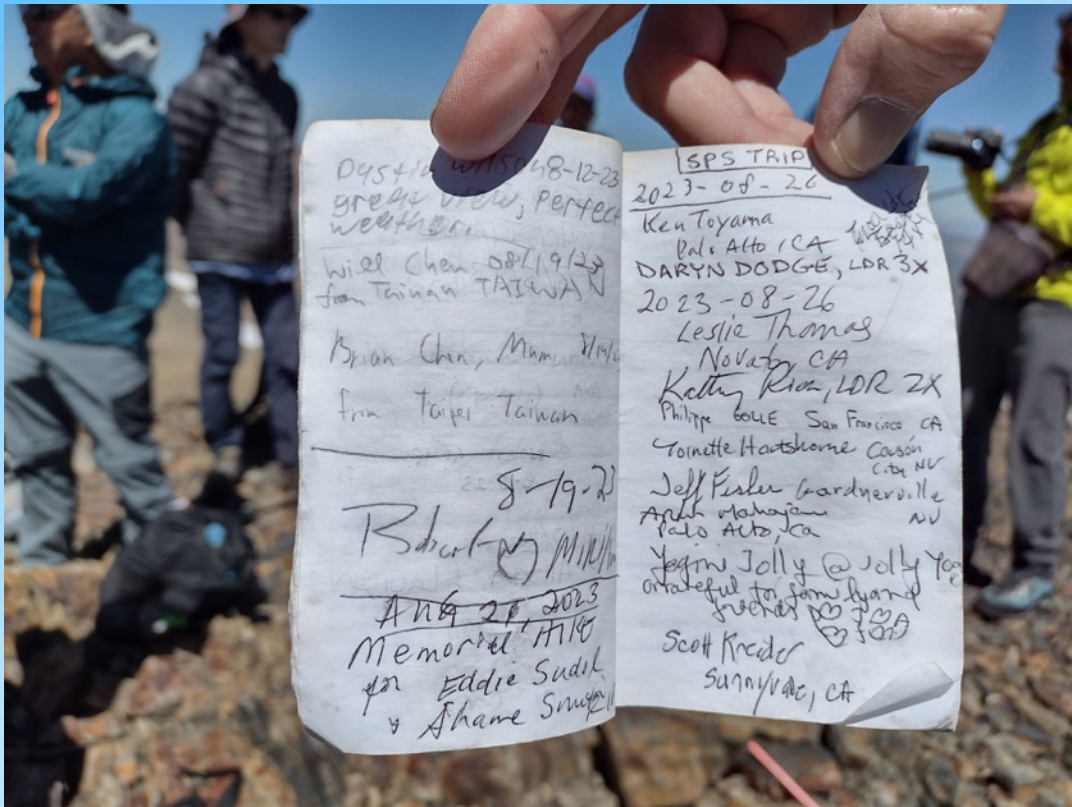 Dustin 8-12-23
great view, Perfect
weather.
Will Chen 08/19/23
from Tainan TAIWAN
Brian Chen,
from Taipei Taiwan
8-19-23
Aug 20, 2023
Memorial Hike
for Eddie
&
SPS TRIP
2023-08-26
Ken Toyama
Palo Alto, CA
DARYN DODGE, LDR 3X
2023-08-26
Leslie Thomas
Novato, CA
Kathy Rich, LDR 2X
Philippe GOLLE San Francisco CA
Hartshorne Carson
City NV
Jeff Fisher Gardnerville
NV
Arun Mahajan
Palo Alto, Ca
Yogini Jolly @ Jolly
Grateful for family and
friends
Scott Kreider
Sunnyvale, CA